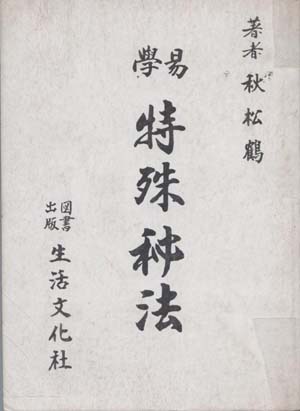 著者 秋松鶴
易學
特殊神法
図書出版
生活文化社